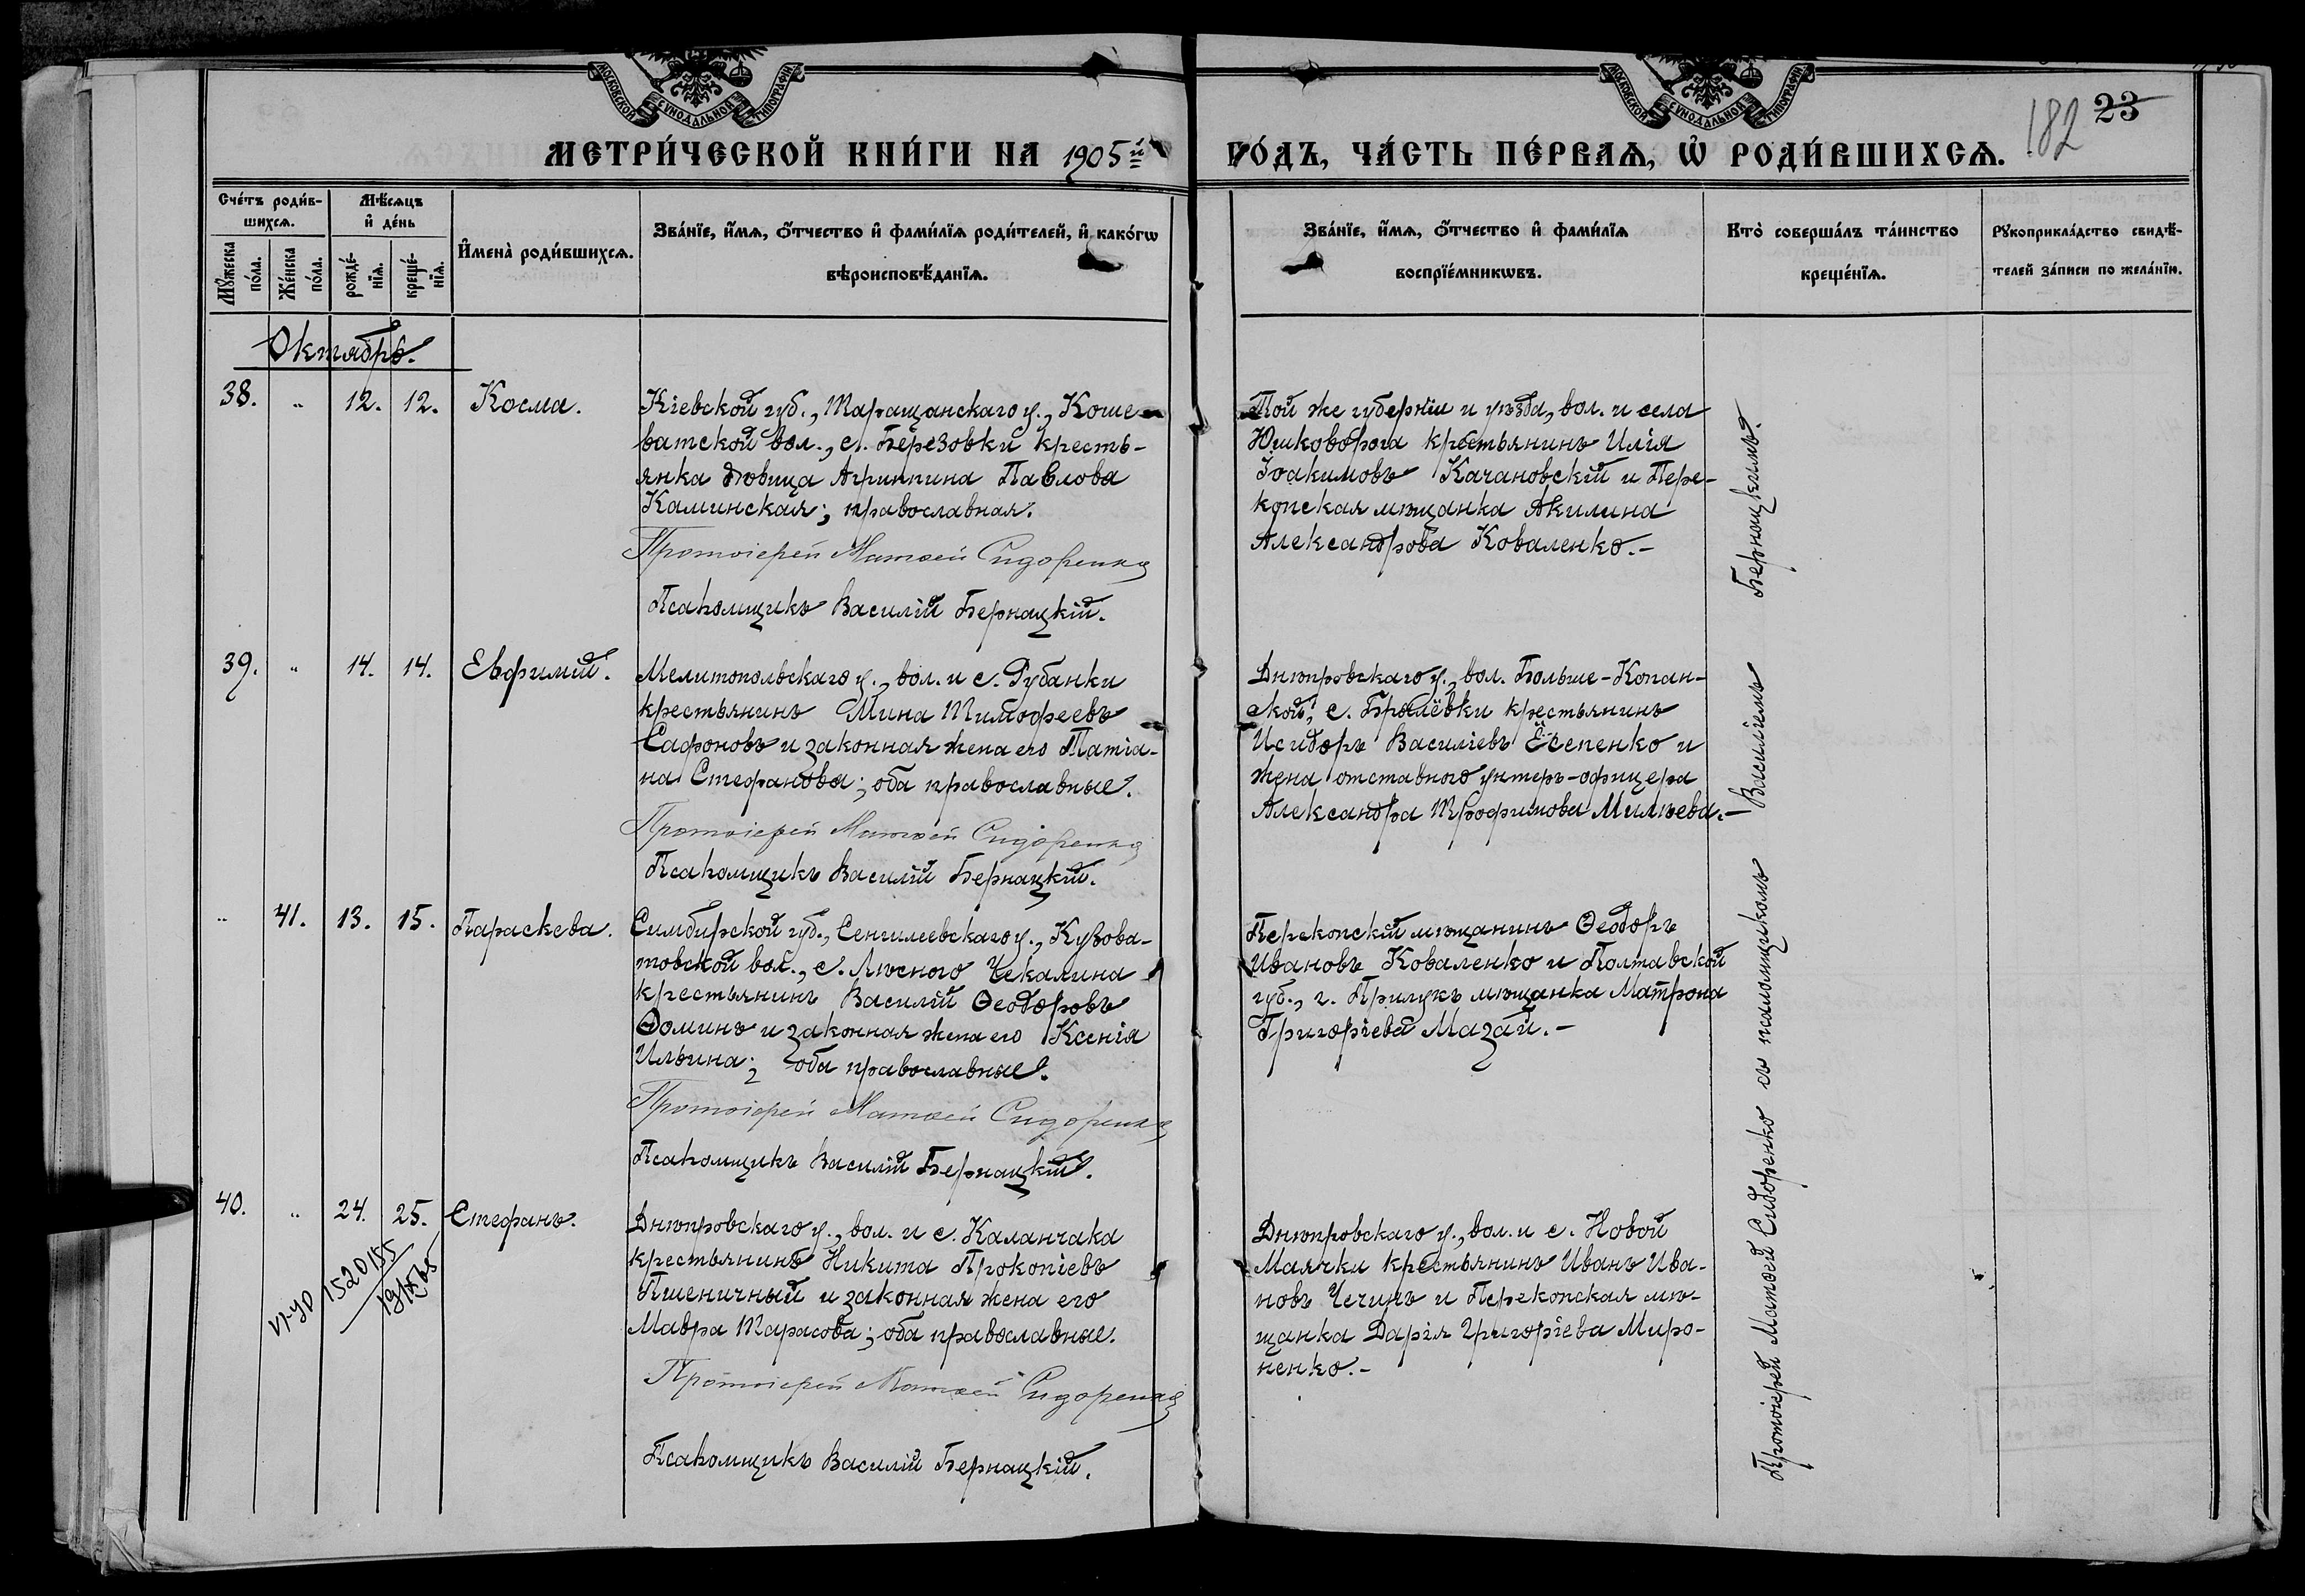 МОСКОВСКОЙ СУНОДАЛЬНОЙ ТИПОГРАФІИ
МОСКОВСКОЙ СУНОДАЛЬНОЙ ТИПОГРАФІИ
182 23
МЕТРИ́ЧЕСКОЙ КНИ́ГИ НА 1905й
ГО́ДЪ, ЧА́СТЬ ПЕ́РВАѦ, Ѡ҆ РОДИ́ВШИХСѦ.
Сче́тъ роди́в-
шихсѧ.
Мꙋ́жеска
по́ла.
Же́нска
по́ла.
Мѣ́сѧцъ
и҆ де́нь
рожде́-
нїѧ.
креще́-
нїѧ.
И҆мена̀ роди́вшихсѧ.
Зва́нїе, и҆́мѧ, ѻ҆́тчество и҆ фами́лїѧ роди́телей, и҆ како́гѡ
вѣроисповѣ́данїѧ.
Зва́нїе, и҆́мѧ, ѻ҆́тчество и҆ фами́лїѧ
воспрїе́мникѡвъ.
Кто̀ соверша́лъ та́инство
креще́нїѧ.
Рꙋкоприкла́дство свидѣ́-
телей за́писи по жела́нїю.
Октябрь.
38. „ 12. 12. Косма.
Кіевской губ., Таращанскаго у., Коше-
ватской вол., с. Березовки кресть-
янка дѣвица Агриппина Павлова
Каминская; православная.
Протоіерей Матѳей Сидоренко
Псаломщикъ Василій Бернацкій.
Той же губерніи и уѣзда, вол. и села
Юшковорога крестьянинъ Илія
Іоакимовъ Качановскій и Пере-
копская мѣщанка Акилина
Александрова Коваленко.-
39. „ 14. 14. Евфимій.
Мелитопольскаго у., вол. и с. Рубанки
крестьянинъ Мина Тимофеевъ
Сафоновъ и законная жена его Татіа-
на Стефанова; оба православные.
Протоіерей Матѳей Сидоренко
Псаломщикъ Василій Бернацкій.
Днѣпровскаго у., вол. Больше-Копан-
ской, с. Брилёвки крестьянинъ
Исидоръ Василіевъ Ёсепенко и
жена отставного унтеръ-офицера
Александра Трофимова Милѣева.-
„ 41. 13. 15. Параскева.
Симбирской губ., Сенгилеевскаго у., Кузова-
товской вол., с. Лѣсного Чекалина
крестьянинъ Василій Ѳеодоровъ
Ѳоминъ и законная жена его Ксенія
Ильина; оба православные.
Протоіерей Матѳей Сидоренко
Псаломщикъ Василій Бернацкій.
Перекопскій мѣщанинъ Ѳеодоръ
Ивановъ Коваленко и Полтавской
губ., г. Прилукъ мѣщанка Матрона
Григоріева Мазай.-
40. „ 24. 25. Стефанъ.
1520
Днѣпровскаго у., вол. и с. Каланчака
крестьянинъ Никита Прокопіевъ
Пшеничный и законная жена его
Мавра Тарасова; оба православные.
Протоіерей Матѳей Сидоренко
Псаломщикъ Василій Бернацкій.
Днѣпровскаго у., вол. и с. Новой
Маячки крестьянинъ Иванъ Ива-
новъ Чечинъ и Перекопская мѣ-
щанка Дарія Григоріева Миро-
ненко.-
Протоіерей Матѳей Сидоренко съ псаломщикомъ Василіемъ Бернацкимъ.